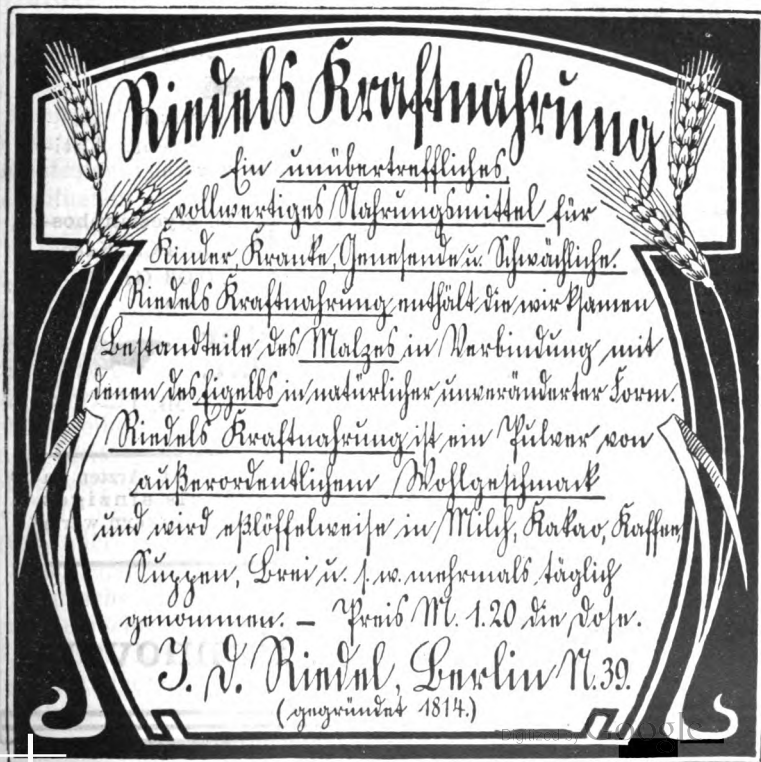 Riedels Kraftnahrung
Ein unübertreffliches,
vollwertiges Nahrungsmittel für
Kinder, Kranke, Genesende u. Schwächliche.
Riedels Kraftnahrung enthält die wirksamen
Bestandteile des Malzes in Verbindung mit
denen des Eigelbs in natürlicher unveränderter Form.
Riedels Kraftnahrung ist ein Pulver von
außerordentlichem Wohlgeschmack
und wird eßlöffelweise in Milch, Kakao, Kaffee,
Suppen, Brei u. s. w. mehrmals täglich
genommen. – Preis M. 1.20 die Dose.
J. D. Riedel, Berlin N. 39.
(gegründet 1814.)
Digitized by Google